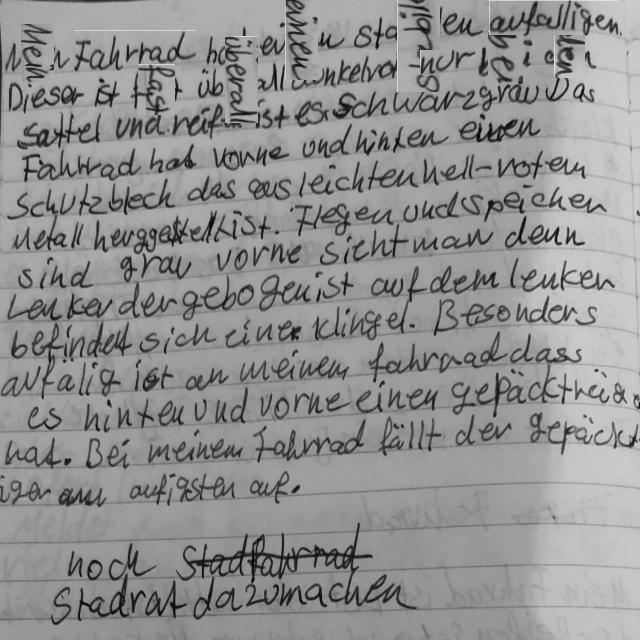 Mein Fahrrad hat einen sta len aufälligen
Dieser ist fast überall dunkelrot nur bei den
Sattel und reifen ist es schwarzgrau Das
Fahrrad hat vorne und hinten einen
Schutzblech das aus leichten hell-rotem
Metall herggestellt ist. Flegen und speichen
sind grau vorne sieht man denn
Lenker der gebogen ist auf dem lenker
befindet sich eine klingel. Besonders
aufälig ist an meinem fahrrad dass
es hinten und vorne einen gepäckträ
hat. Bei meinem Fahrrad fällt der gepäckt
iger am aufigsten auf.
noch Stadfahrrad
Stadrat dazumachen